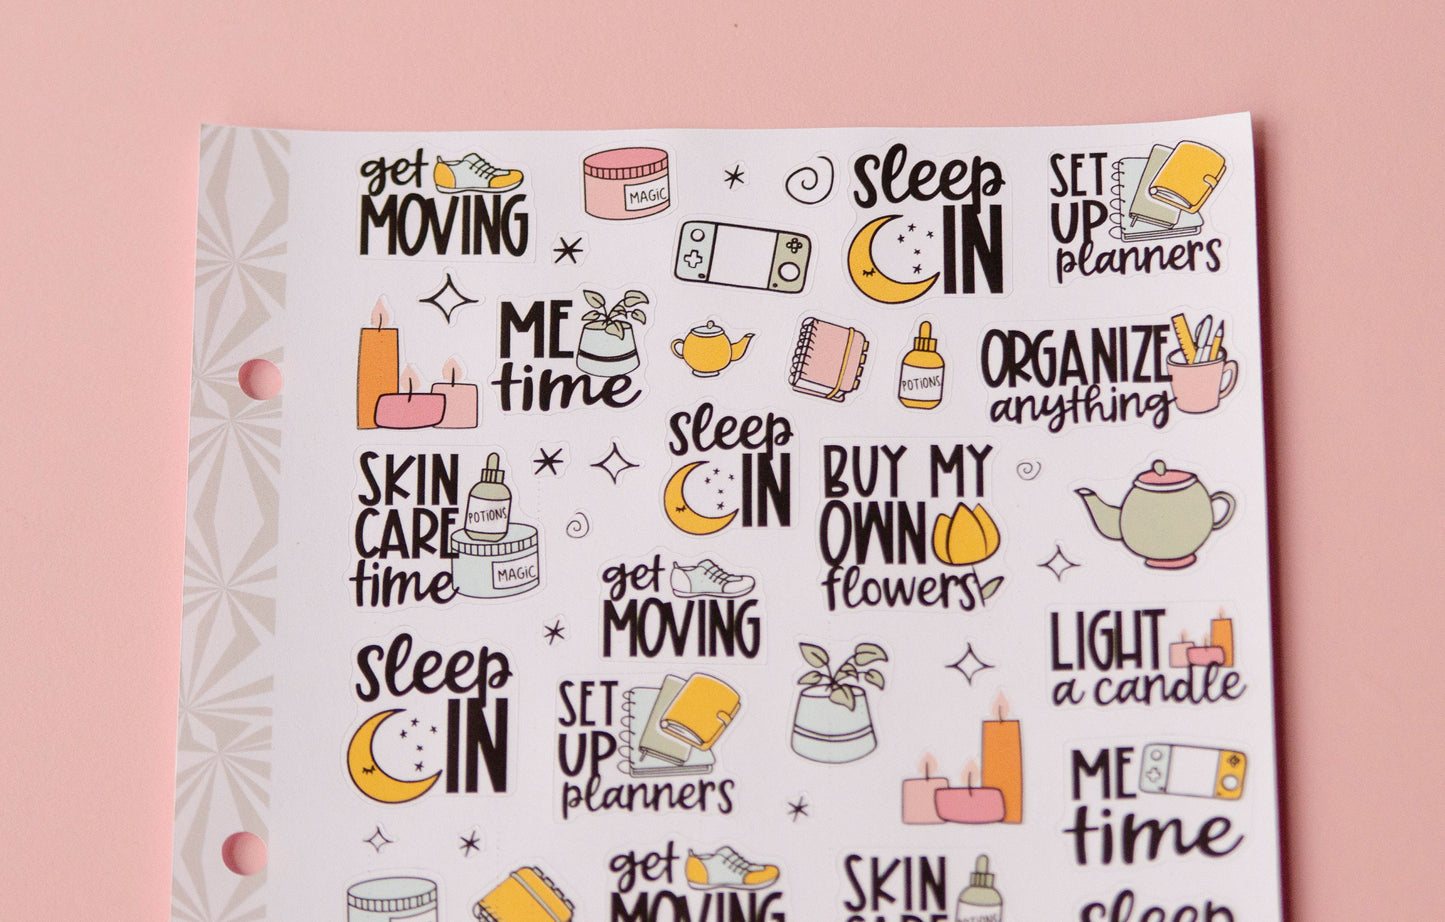 get
MOVING
MAGIC
sleep
IN
SET
UP
planners
ME
time
POTIONS
ORGANIZE
anything
SKIN
CARE
time
POTIONS
MAGIC
sleep
IN
BUY MY
OWN
flowers
get
MOVING
LIGHT
a candle
sleep
IN
SET
UP
planners
ME
time
get
MOVING
SKIN
CARE
POTIONS
sleep